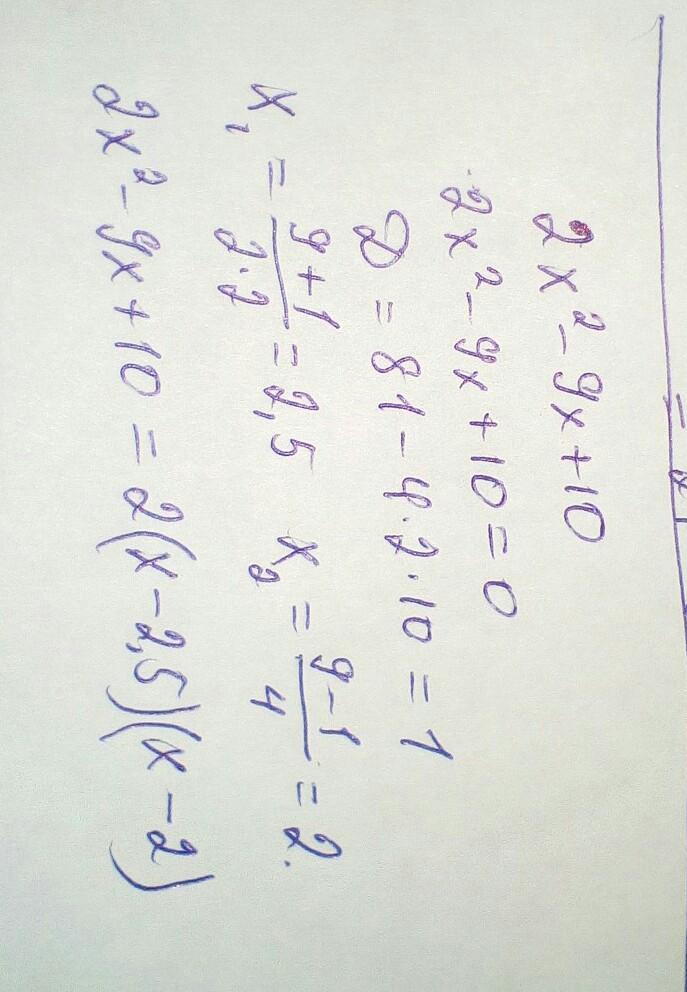 2x² - 9x + 10
2x² - 9x + 10 = 0
D = 81 - 4·2·10 = 1
x₁ = (9 + 1)/(2·2) = 2,5   x₂ = (9 - 1)/4 = 2.
2x² - 9x + 10 = 2(x - 2,5)(x - 2)